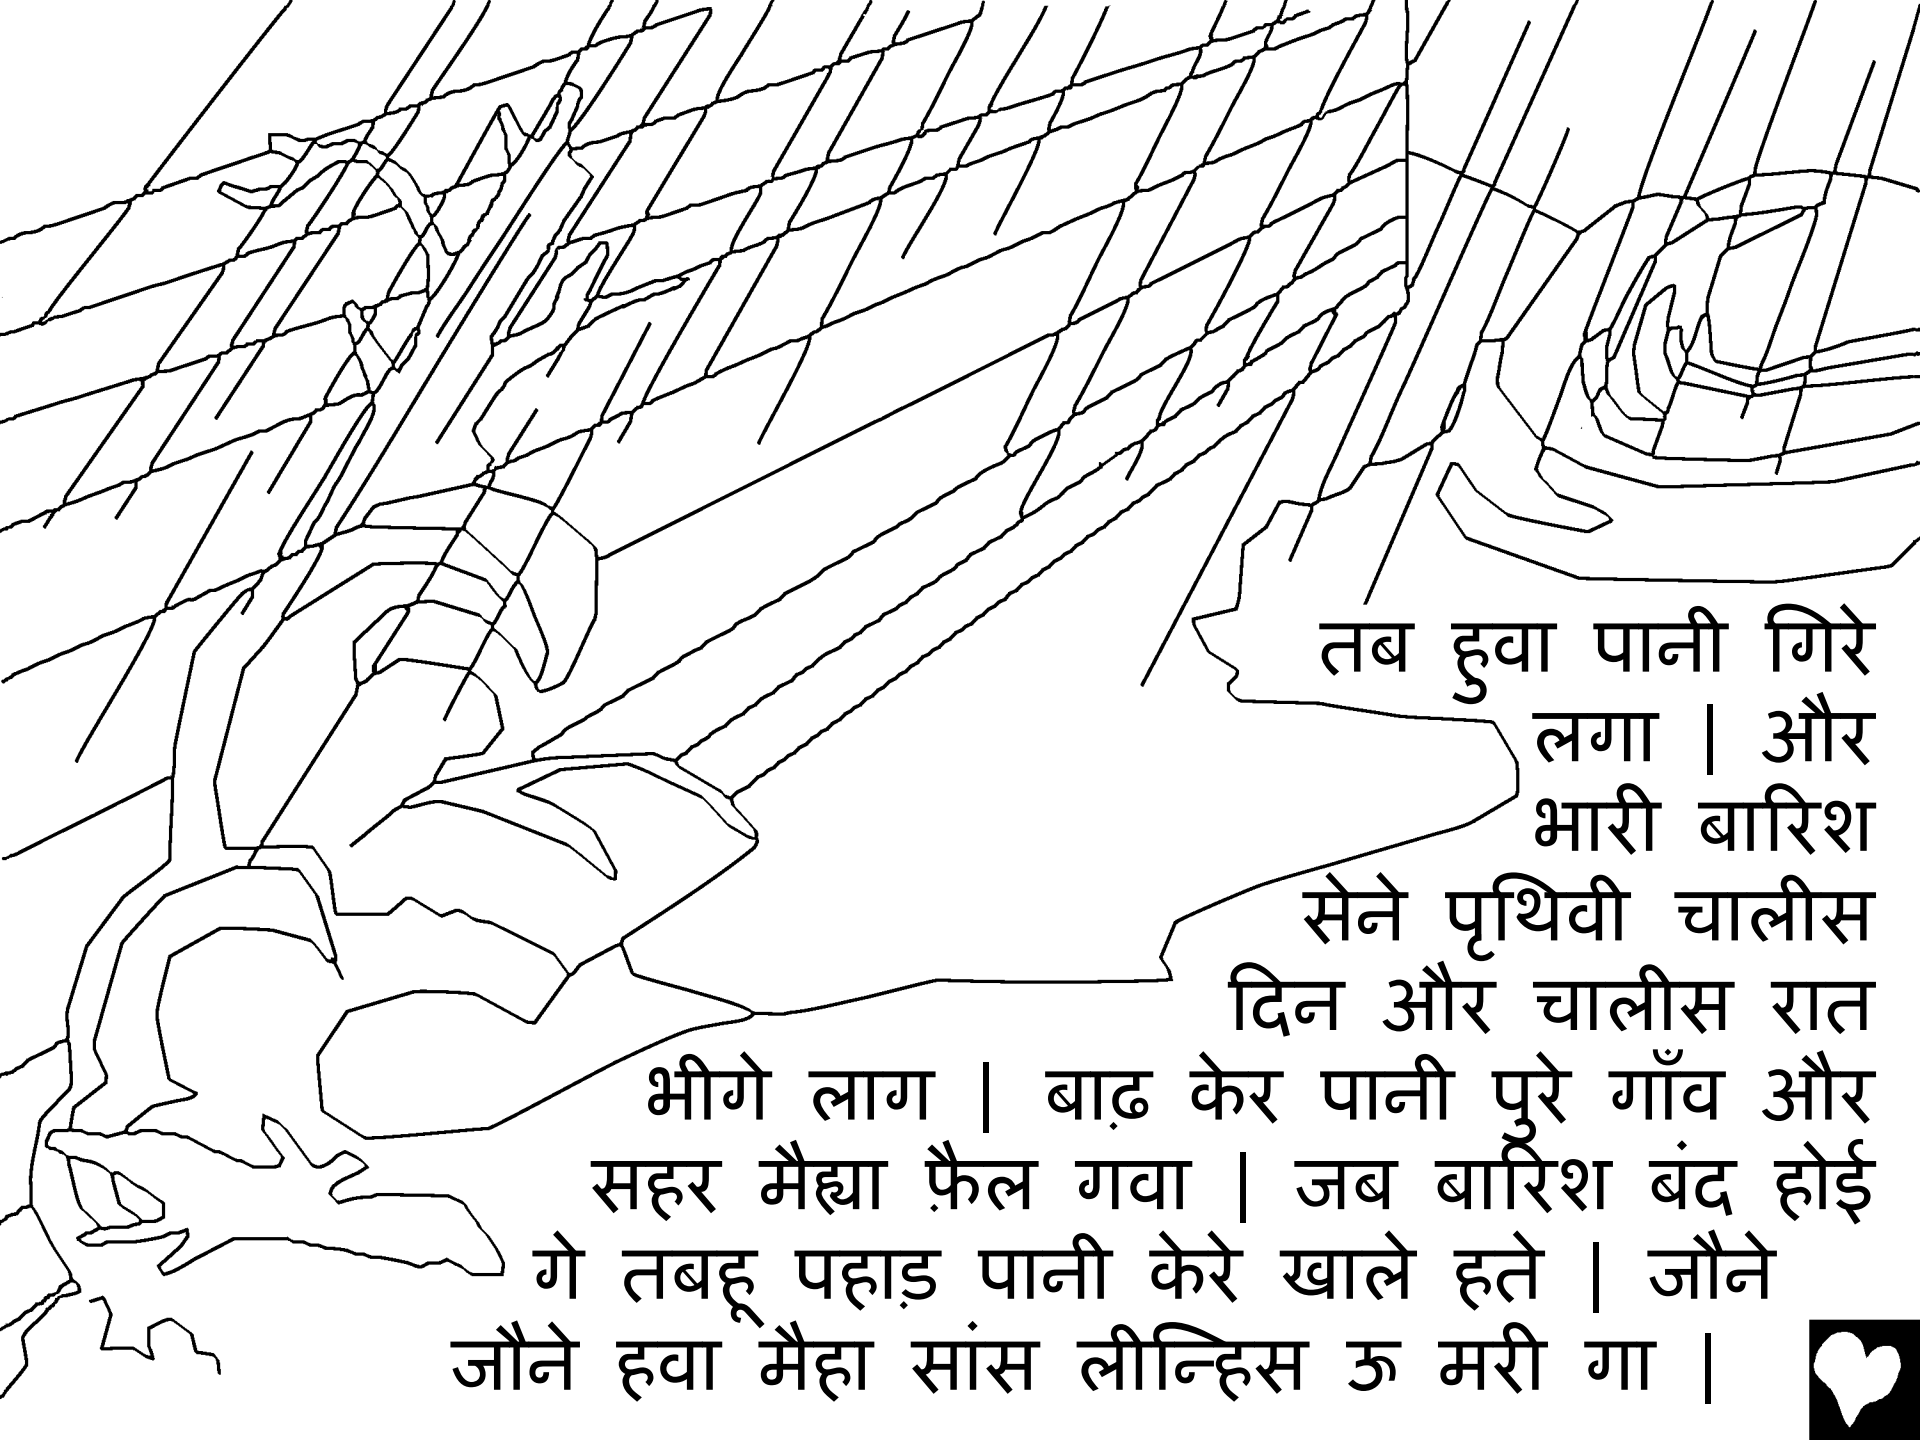 तब हुवा पानी गिरे
लगा | और
भारी बारिश
सेने पृथिवी चालीस
दिन और चालीस रात
भीगे लाग | बाढ़ केर पानी पुरे गाँव और
सहर मैह्या फ़ैल गवा | जब बारिश बंद होई
गे तबहू पहाड़ पानी केरे खाले हते | जौने
जौने हवा मैहा सांस लीन्हिस ऊ मरी गा |